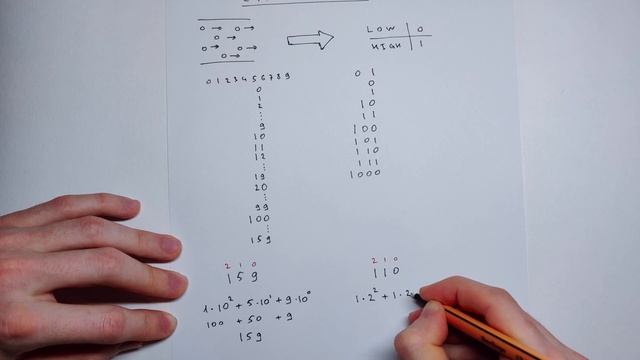 LOW 0
HIGH 1
0 1 2 3 4 5 6 7 8 9
0
1
2
⋮
9
10
11
12
⋮
19
20
⋮
99
100
⋮
159
0 1
0
1
10
11
100
101
110
111
1000
2 1 0
159
1·10² + 5·10¹ + 9·10⁰
100 + 50 + 9
159
2 1 0
110
1·2² + 1·2